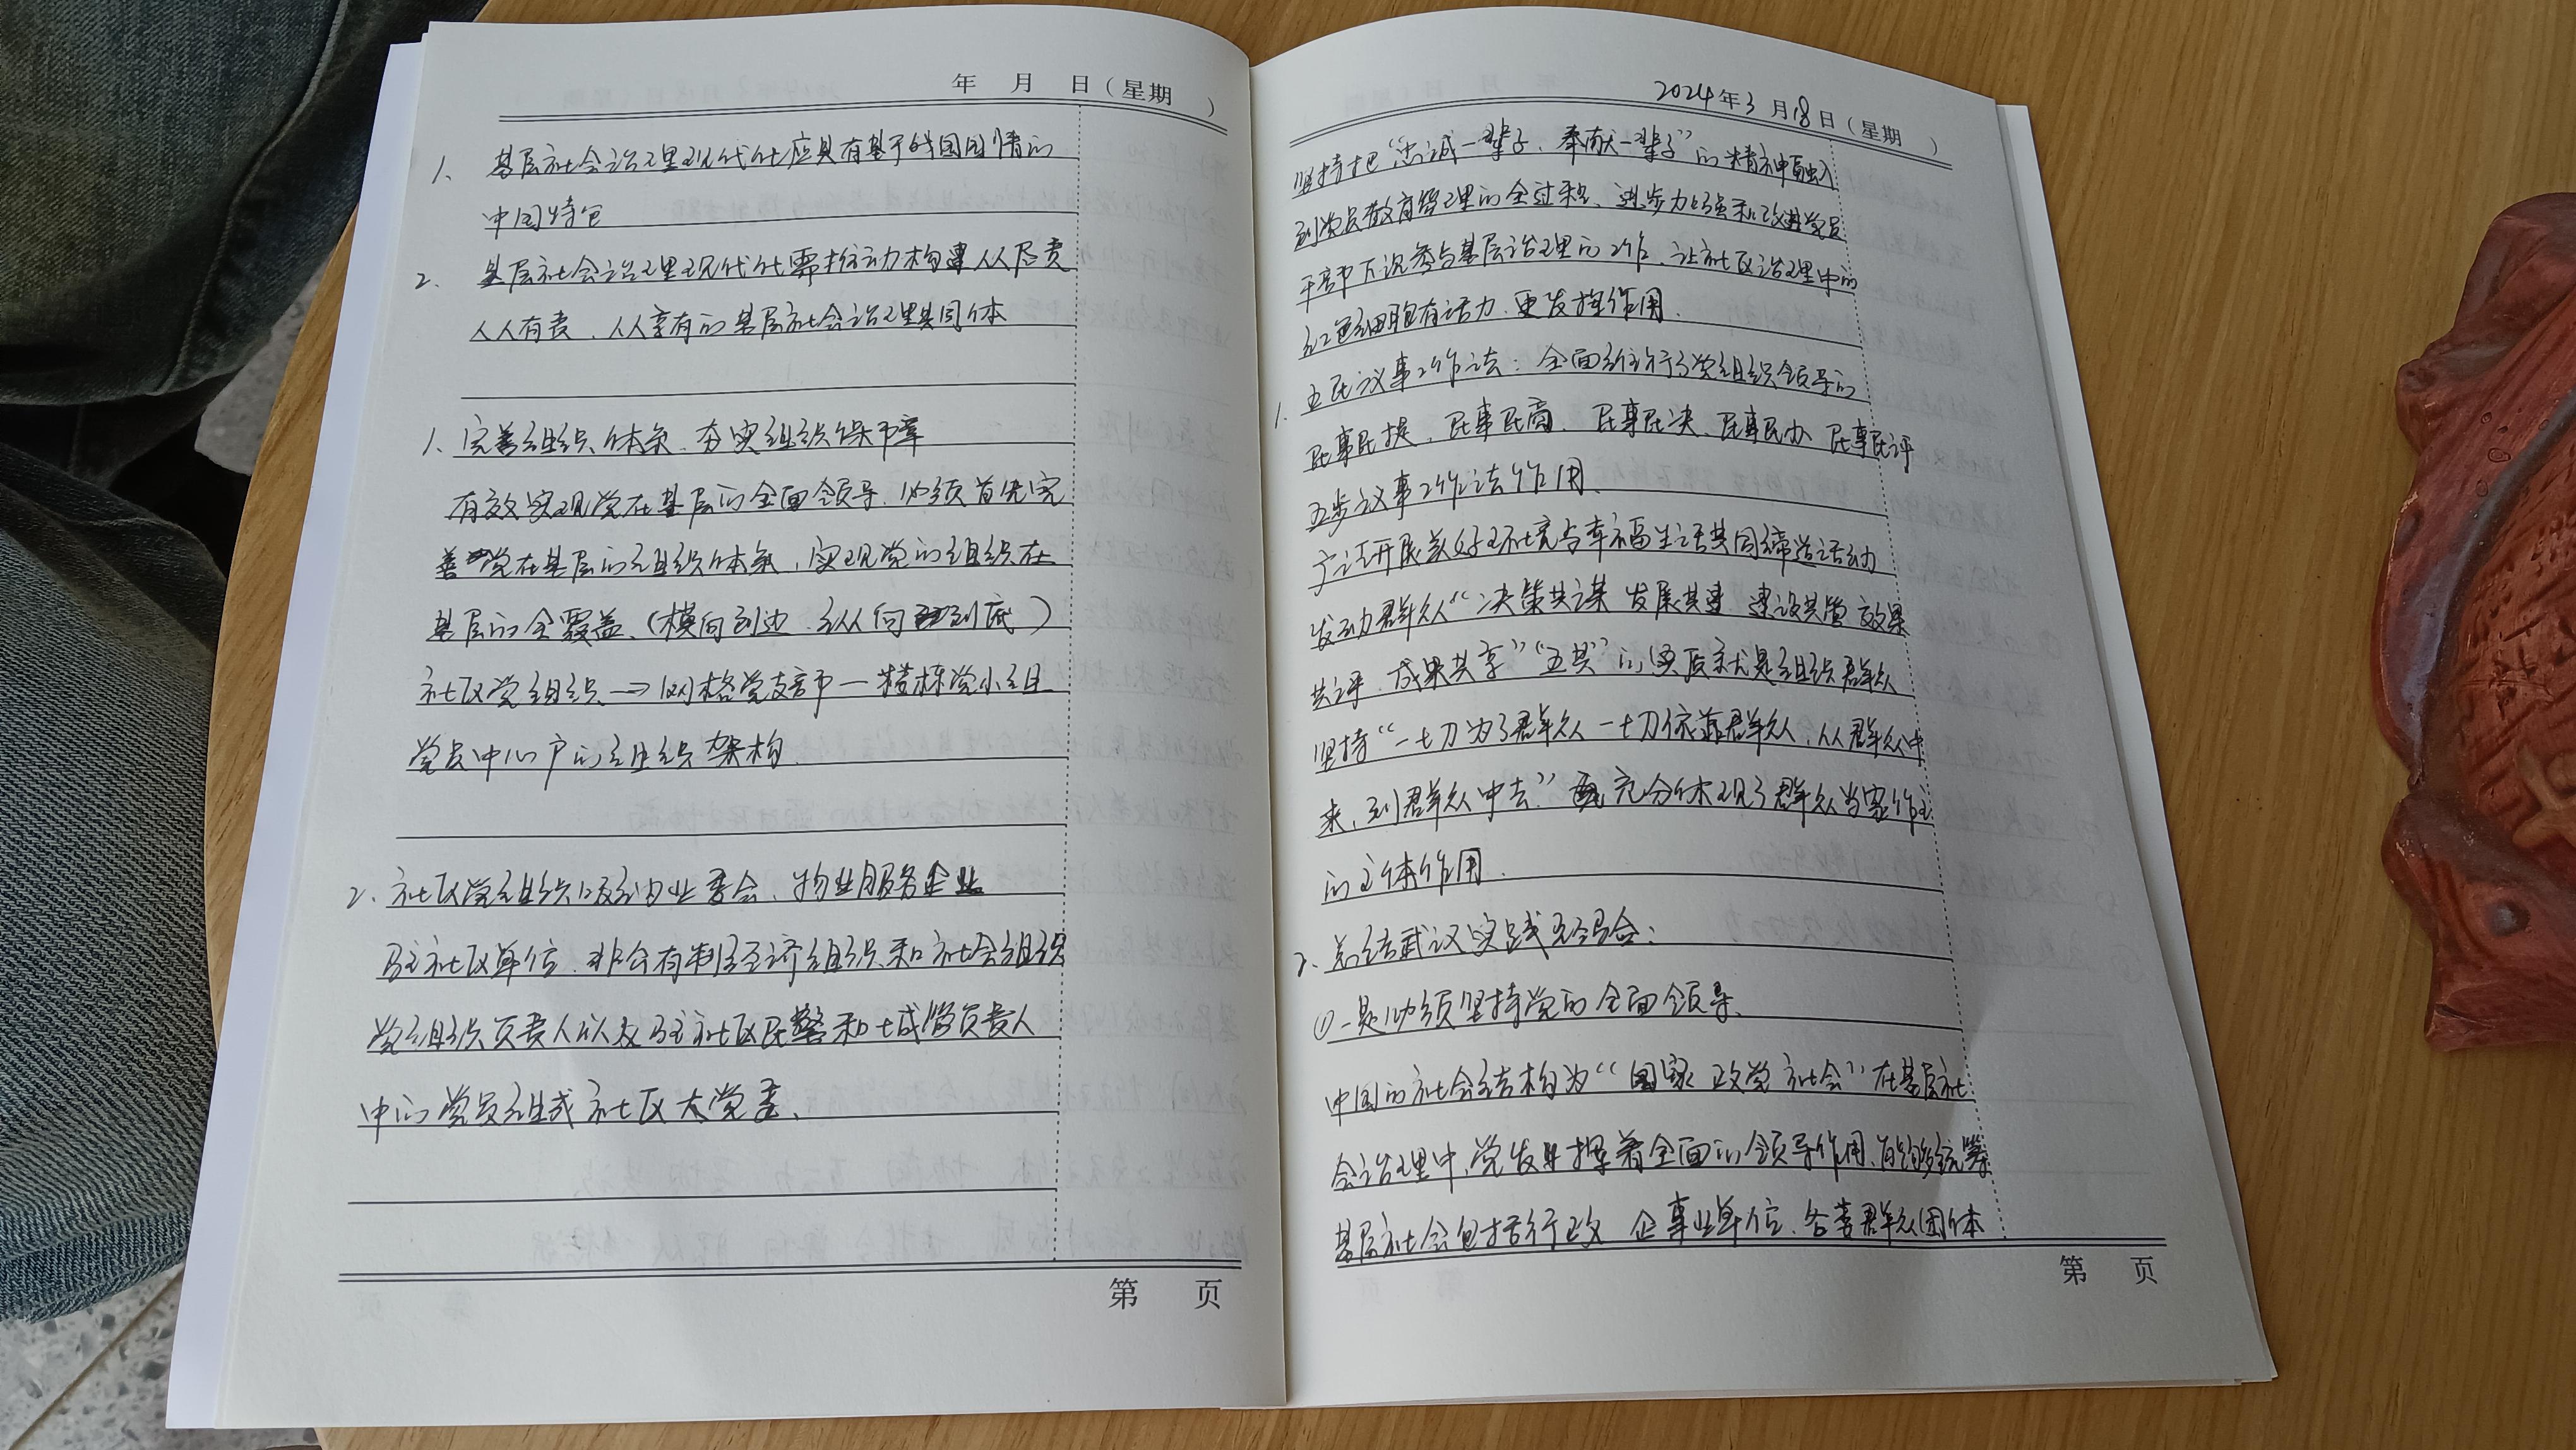 年 月 日（星期 ）
1、 基层社会治理现代化应具有基于我国国情的
中国特色
2、 基层社会治理现代化需推动构建人人尽责
人人有责、人人享有的基层社会治理共同体
1、完善组织体系、夯实组织保障
有效实现党在基层的全面领导、必须首先完
善党在基层的组织体系，实现党的组织在
基层的全覆盖、（横向到边、纵向到底）
社区党组织→网格党支部—楼栋党小组
党员中心户的组织架构
2、社区党组织吸纳业委会、物业服务企业
驻社区单位、非公有制经济组织和社会组织
党组织负责人以及驻社区民警和城管负责人
中的党员组成社区大党委、
第 页
2024年3月18日（星期 ）
坚持把“忠诚一辈子、奉献一辈子”的精神融入
到党员教育管理的全过程、进步加强和改进党员
干部下沉参与基层治理的工作、让社区治理中的
红色细胞有活力、更发挥作用.
1. 五民议事工作法：全面推行了党组织领导的
民事民提、民事民商、民事民决、民事民办 民事民评
五步议事工作法作用、
广泛开展美好环境与幸福生活共同缔造活动
发动群众“决策共谋 发展共建 建设共管 效果
共评、成果共享”“五共”的实质就是组织群众
坚持“一切为了群众 一切依靠群众，从群众中
来、到群众中去”充分体现了群众当家作主
的主体作用.
2、总结武汉实践充结合：
①一是必须坚持党的全面领导、
中国的社会结构为“国家 政党 社会”在基层社
会治理中、党发挥着全面的领导作用、有能够统筹
基层社会包括行政 企事业单位、各类群众团体
第 页